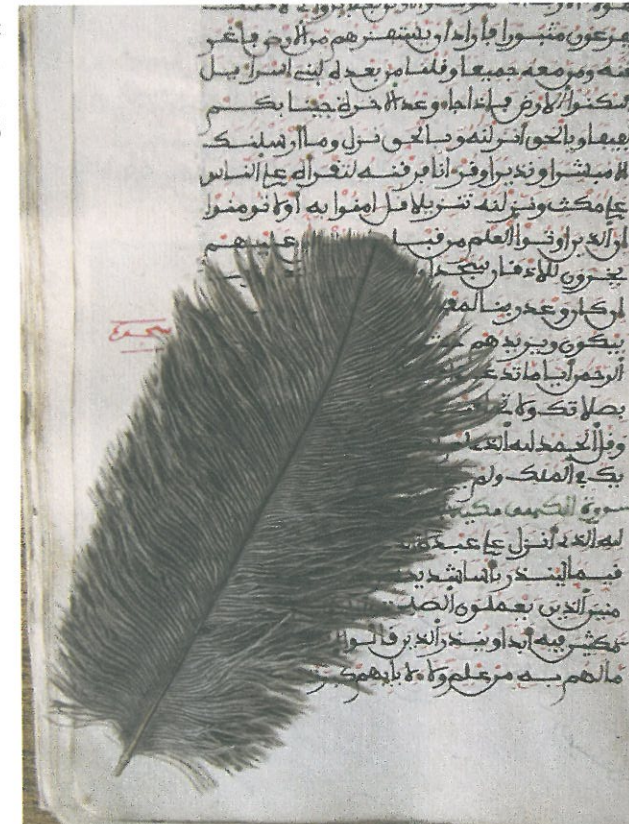 فرعون مثبورا فأراد أن يستفزهم من الارض فأغر
قنه ومن معه جميعا وقلنا من بعده لبني اسرايل
اسكنوا الارض فإذا جاء وعد الاخرة جينا بكم
لفيفا وبالحق انزلنه وبالحق نزل وما ارسلنك
الا مبشرا ونذيرا وقرانا فرقنه لتقراه على الناس
على مكث ونزلنه تنزيلا قل امنوا به أو لا تومنوا
ان الذين اوتوا العلم من قبله عليهم
يخرون للاذقان سجدا
ان كان وعد ربنا
سجدة
يبكون ويزيدهم
الرحمن أيا ما
بصلاتك ولا
وقل الحمد لله الذي
يك في الملك ولم
سورة الكهف مكية
لله الذي أنزل على عبده
قيما لينذر بأسا شديدا
منين الذين يعملون
مكثين فيه أبدا وينذر الذين قالوا
ما لهم به من علم ولا لابايهم كبرت